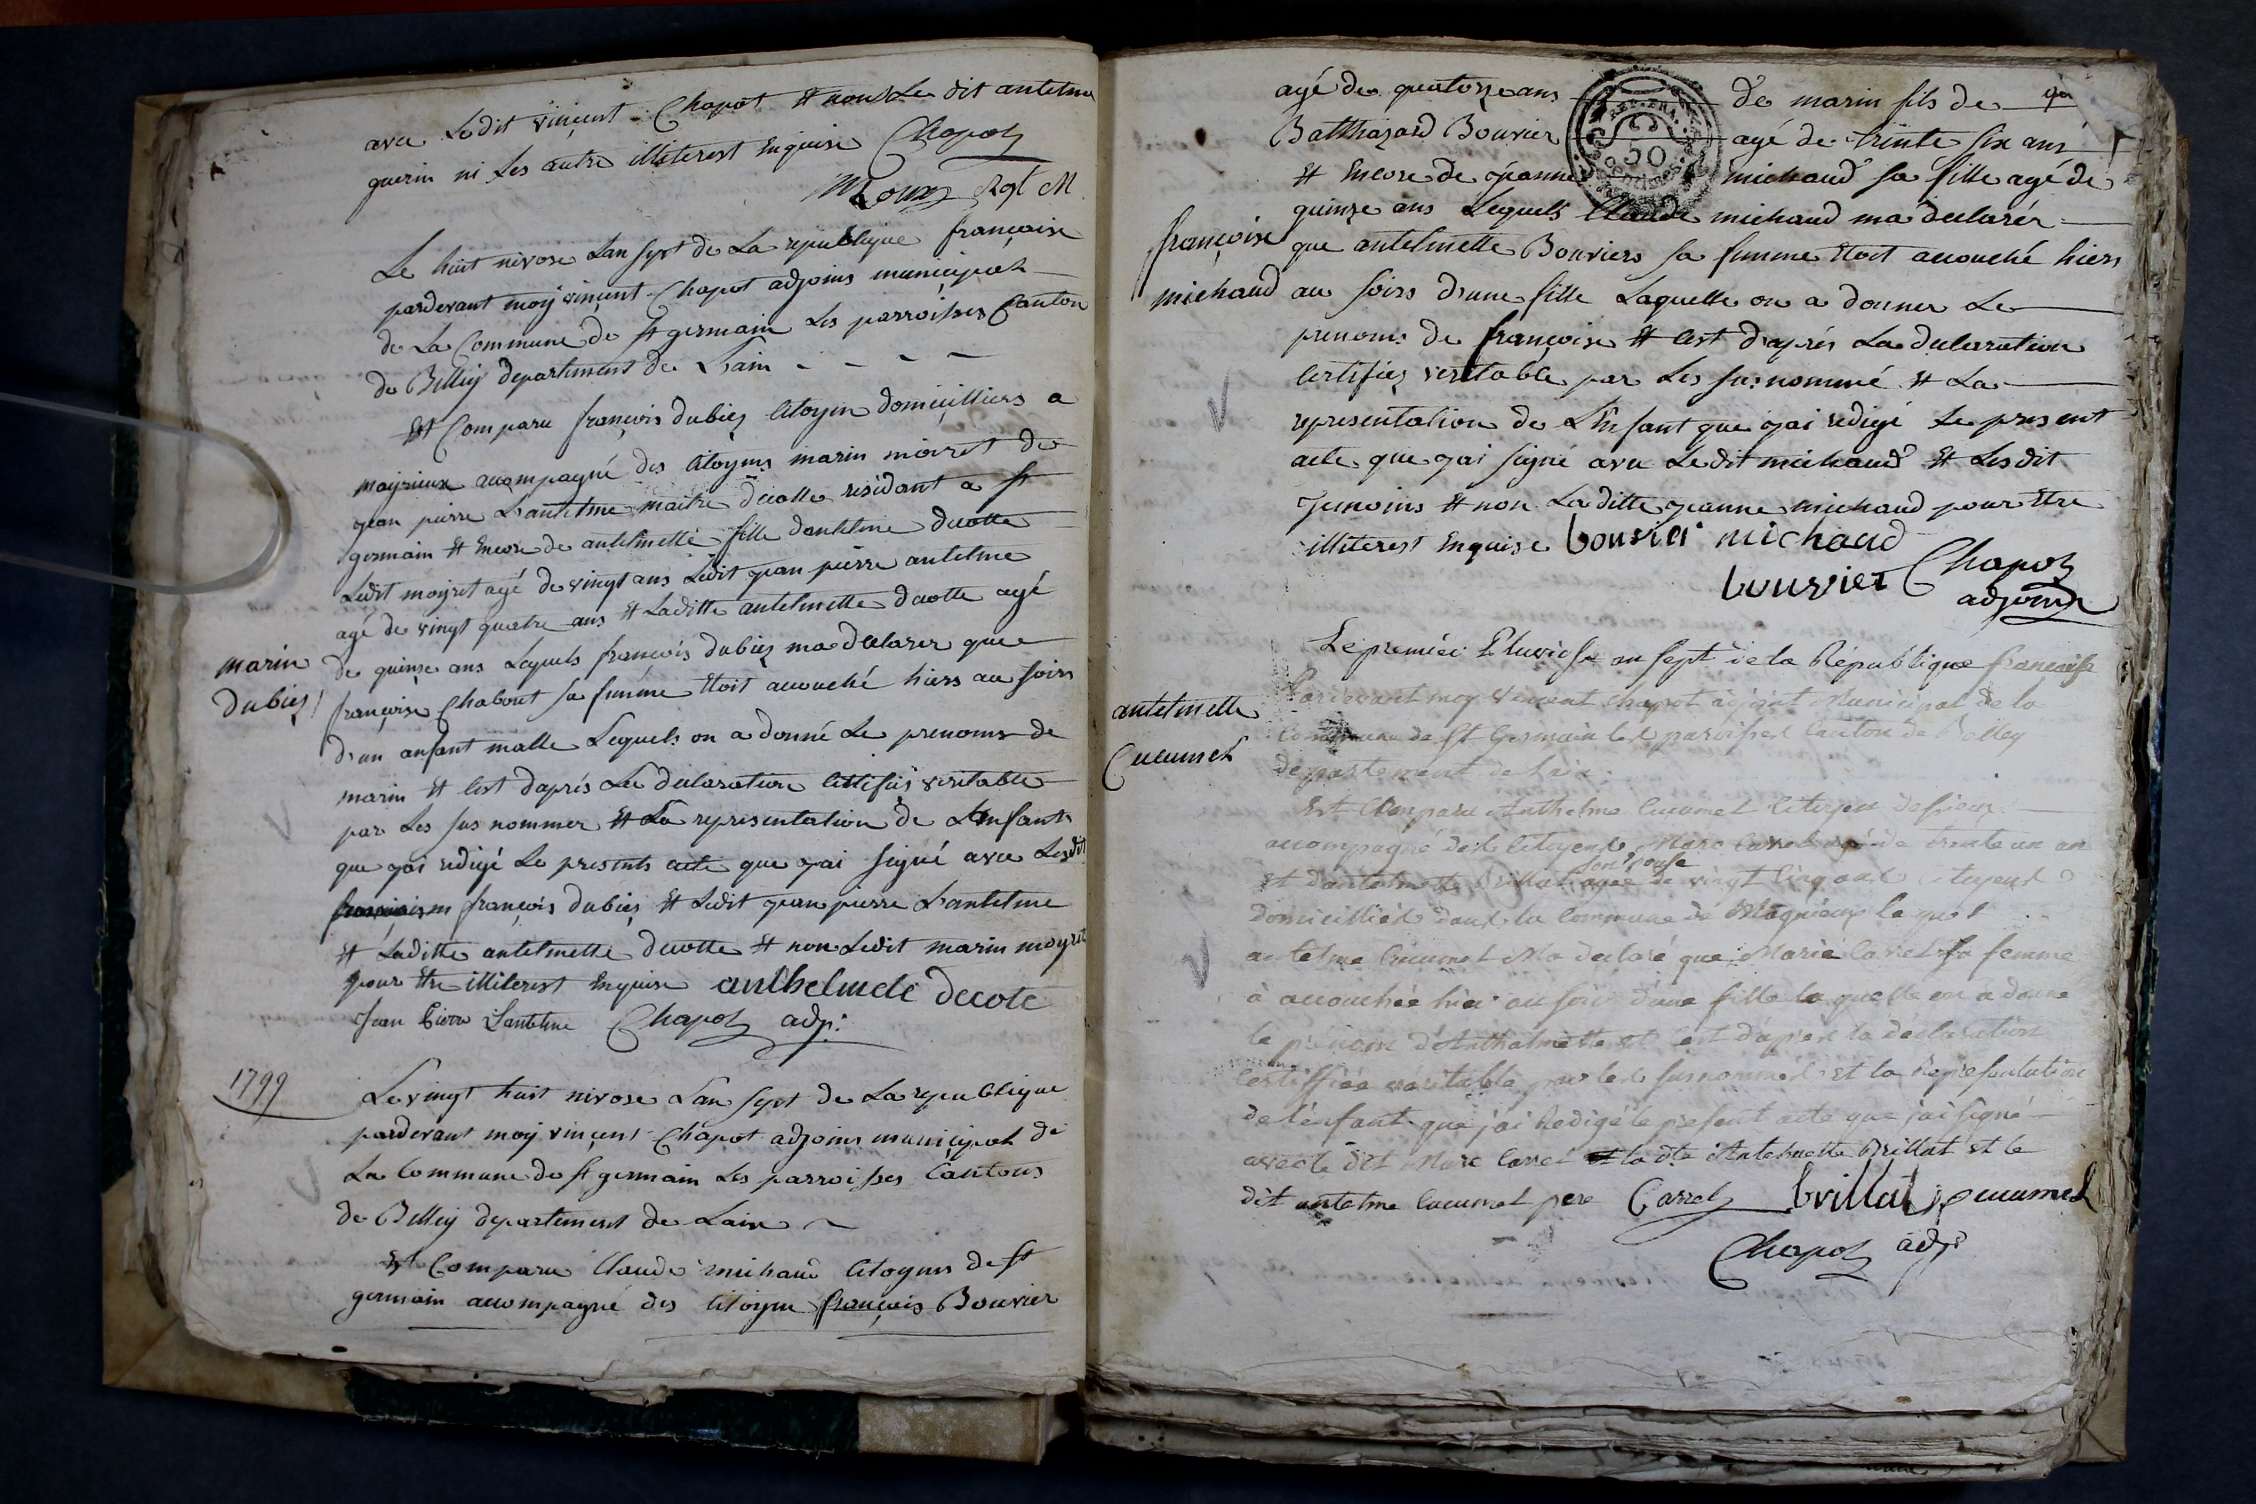 avec Ledit vinçent Chapot et non Le dit antelme
guerin ni Les autre illiterest Enquise Chapot
Roux Agt M
Le huit nivose Lan sept de La republique françoise
pardevant moy vinçent Chapot adjoins municipal
de La Commune de st germain Les parroisses Canton
de Belley departement de Lain - - -
Est Comparu françois dubiez Citoyen domicilliers a
mayrieux acompagné des Citoyens marin moiret de
jean pierre Lantelme maitre decolle residant a st
germain et Encore de antelmette fille dantelme decotte
Ledit moyret agé de vingt ans Ledit jean pierre antelme
agé de vingt quatre ans et Laditte antelmette decotte agé
marin
dubiez
de quinze ans Lequels françois dubiez ma declarer que
françoise Chabout sa femme Etoit acouché hiers au soirs
d'un anfant malle Lequels on a donné Le prenoms de
marin et Cest daprés La declaration Certifiés veritable
par Les sus nommer et La representation de Lenfant
que jai redigé Le presents acte que jai signé avec Lesdit
françois dubiez et Ledit jean pierre Lantelme
et Laditte antelmette decotte et non Ledit marin moyret
pour Etre illiterest Enquise anthelmete decote
Jean Pierre Lantelme Chapot adj:
1799
Le vingt huit nivose Lan sept de La republique
pardevant moy vinçent Chapot adjoins municipal de
La Commune de st germain Les parroisses Cantons
de Belley departement de Lain
Est Comparu Claude michaud Citoyens de st
germain acompagné des Citoyen françois Bouvier
agé de quatorze ans de marin fils de
Batthazard Bouvier agé de trente six ans
et Encore de jeanne michaud sa fille agé de
quinze ans Lequels Claude michaud ma declarér
françoise
michaud
que antelmette Bouviers sa femme Etoit acouché hiers
au soirs d'une fille Laquelle on a donner Le
prenoms de françoise et Cest d'aprés La declaration
Certifiez veritable par Les sus nommé et La
representation de L'Enfant que jai redigé Le present
acte que jai signé avec Ledit michaud et Lesdit
Temoins et non Laditte jeanne michaud pour Etre
illiterest Enquise bouvier michaud
bouvier Chapot
adjoins
Le premier Pluviose an sept de la République françoise
antelmette
Cucumel
Pardevant moy Vincent Chapot adjoint Municipal de la
Commune de St Germain les paroisses Canton de Belley
département de Lain.
Est Comparu Anthelme Cucumel Citoyen de
acompagné des Citoyens Marc Carrel agé de trente un an
son Epouse
et d'antelmette Brillat agée de vingt Cinq ans Citoyens
domiciliés dans la Commune de Magnieux le quel
antelme Cucumel Ma declaré que Marie Carrel sa femme
à acouchée hier au soir d'une fille la quelle on a donné
le prenom d'Anthelmette et C'est d'apres la déclaration
Certiffiée véritable par les susnommés et la Représentation
de l'enfant que j'ai Redigé le présent acte que j'ai signé
avec le dit Marc Carrel et la dte Antelmette Brillat et le
dit antelme Cucumel pere Carrel brillat cucumel
Chapot adj